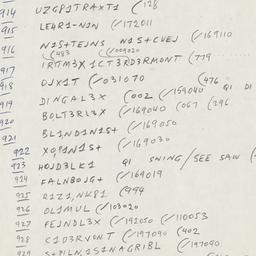 914 UZG81TRAXT1 (128
915 LE4R1-N1N (✓172011
916 N1S+TEJNS N1S+CUEJ (✓169110
(483 (✓009020
917 1RTM3X 1CT3RD3RMONT (779
918 OJX1T (✓031070 (476
919 D1NGAL3X (002 (✓159040 Q1 D1
920 BOLT3RL3X (✓169040 (067 (296
921 BL1ND1N1S+ (✓169050
922 (✓169030
923 HOJD3LK1 Q1 SWING/SEE SAW (
924 FALNBOJG+ (✓169019
925 R1Z1,NK81 (494
926 OL1MUL (✓103020
927 FEJNDL3X (✓192050 (✓110053
928 C1D3RVONT (✓197090 (402
929 (✓197090